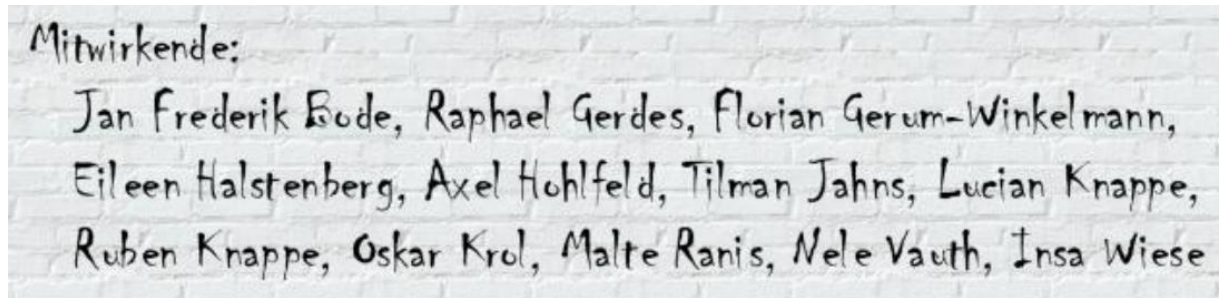 Mitwirkende:
Jan Frederik Bode, Raphael Gerdes, Florian Gerum-Winkelmann,
Eileen Halstenberg, Axel Hohlfeld, Tilman Jahns, Lucian Knappe,
Ruben Knappe, Oskar Krol, Malte Ranis, Nele Vauth, Insa Wiese